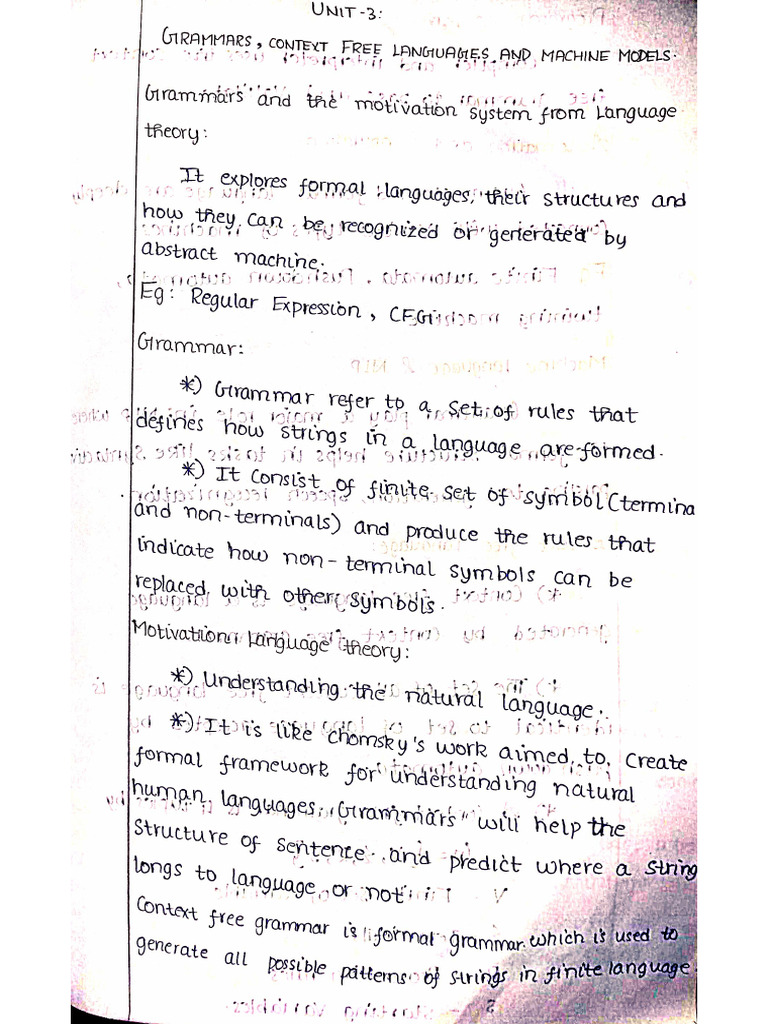 UNIT-3:
GRAMMARS, CONTEXT FREE LANGUAGES AND MACHINE MODELS.
Grammars and the motivation system from Language
theory:
It explores formal languages, their structures and
how they can be recognized or generated by
abstract machine.
Eg: Regular Expression, CFG
Grammar:
*) Grammar refer to a set of rules that
defines how strings in a language are formed.
*) It consist of finite set of symbol (termina
and non-terminals) and produce the rules that
indicate how non-terminal symbols can be
replaced with other symbols.
Motivation Language theory:
*) Understanding the natural language.
*) It is like chomsky's work aimed to create
formal framework for understanding natural
human languages. Grammars will help the
structure of sentence and predict where a string
longs to language or not.
Context free grammar is formal grammar which is used to
generate all possible patterns of strings in finite language